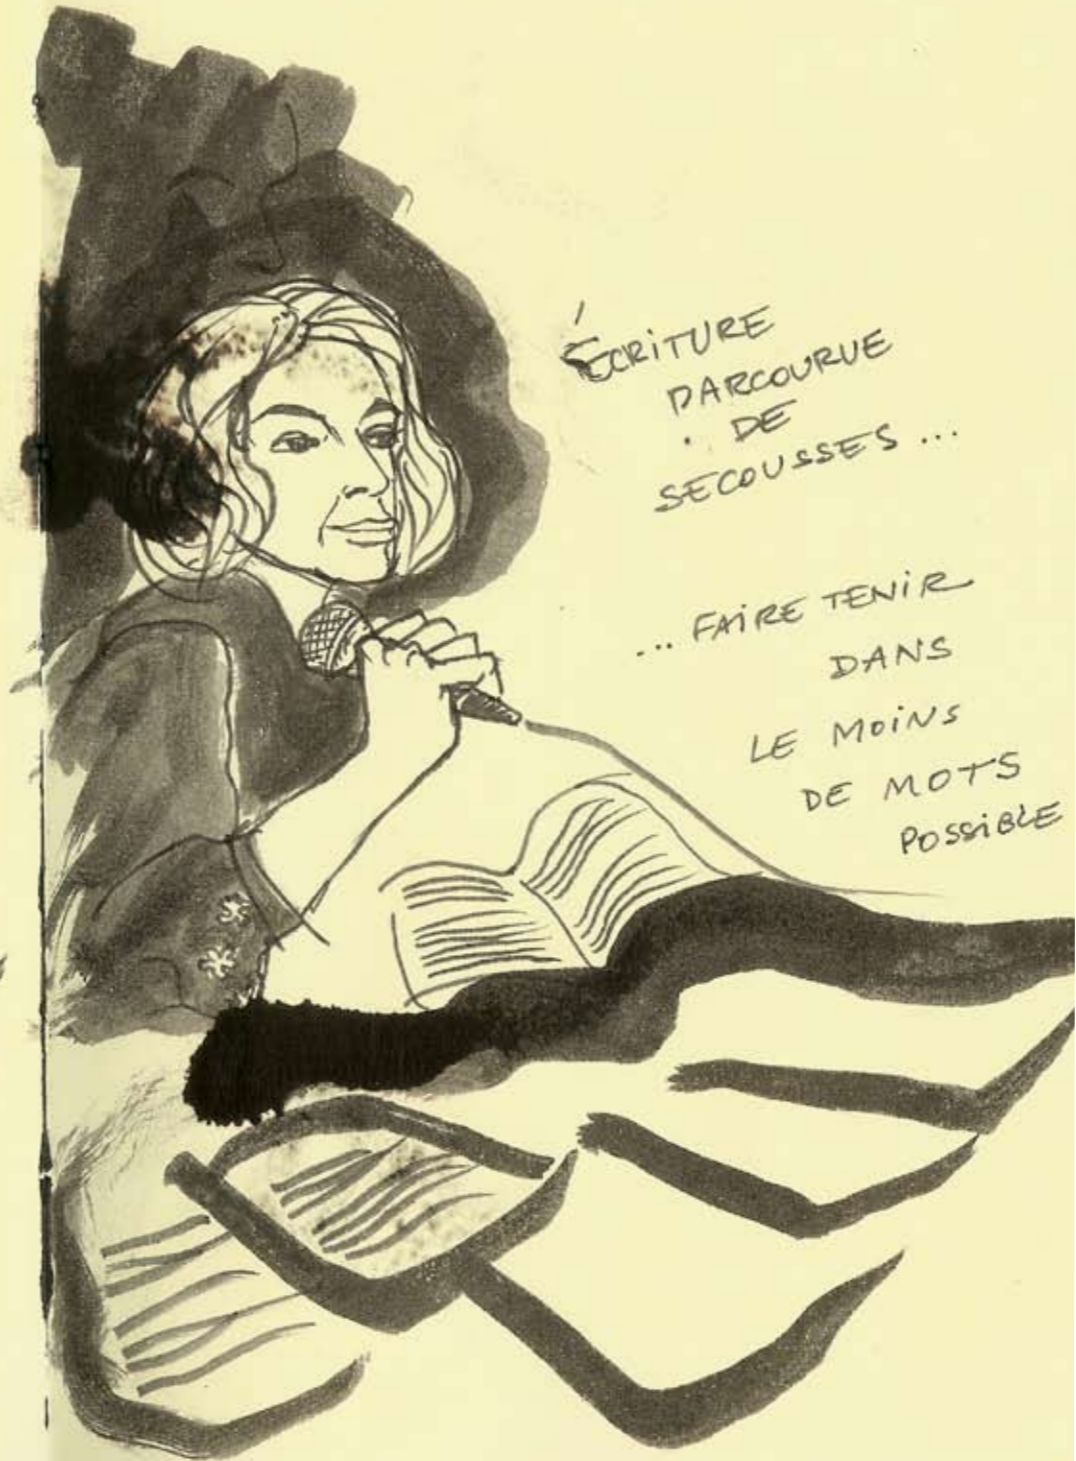 ÉCRITURE
PARCOURUE
DE
SECOUSSES ...
... FAIRE TENIR
DANS
LE MOINS
DE MOTS
POSSIBLE